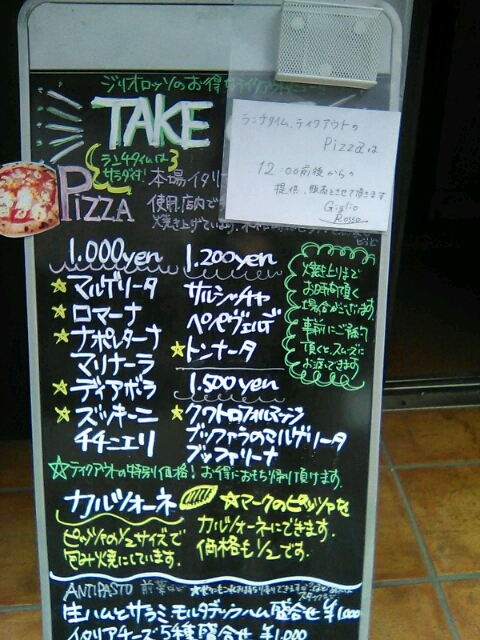 ジリオロッソのお得な
TAKE
ランチタイムは
サラダ付!
PIZZA
本場イタリー
使用。店内で
焼き上げています。
ランチタイム、テイクアウトの
Pizzaは
12:00前後からの
提供、販売とさせて頂きます
Giglio
Rosso
1.000yen
☆マルゲリータ
☆ロマーナ
☆ナポレターナ
マリナーラ
☆ディアボラ
☆ズッキーニ
チチニエリ
1.200yen
サルシッチャ
ペペヴェルデ
☆トンナータ
1.500yen
☆クワトロフォルマッジ
ブッファラのマルゲリータ
ブッファリーナ
焼き上げまで
お時間頂く
場合がございます。
事前にご予約
頂くと、スムーズに
お渡しできます
☆テイクアウトの特別価格!お得におもち帰り頂けます。
カルツォーネ
ピッツァの1/2サイズで
包み焼にしています。
☆マークのピッツァを
カルツォーネにできます。
価格も1/2です。
ANTIPASTO 前菜
生ハムとサラミ モルタデッラハム盛合せ ¥1,000
イタリアチーズ5種盛合せ ¥1,000